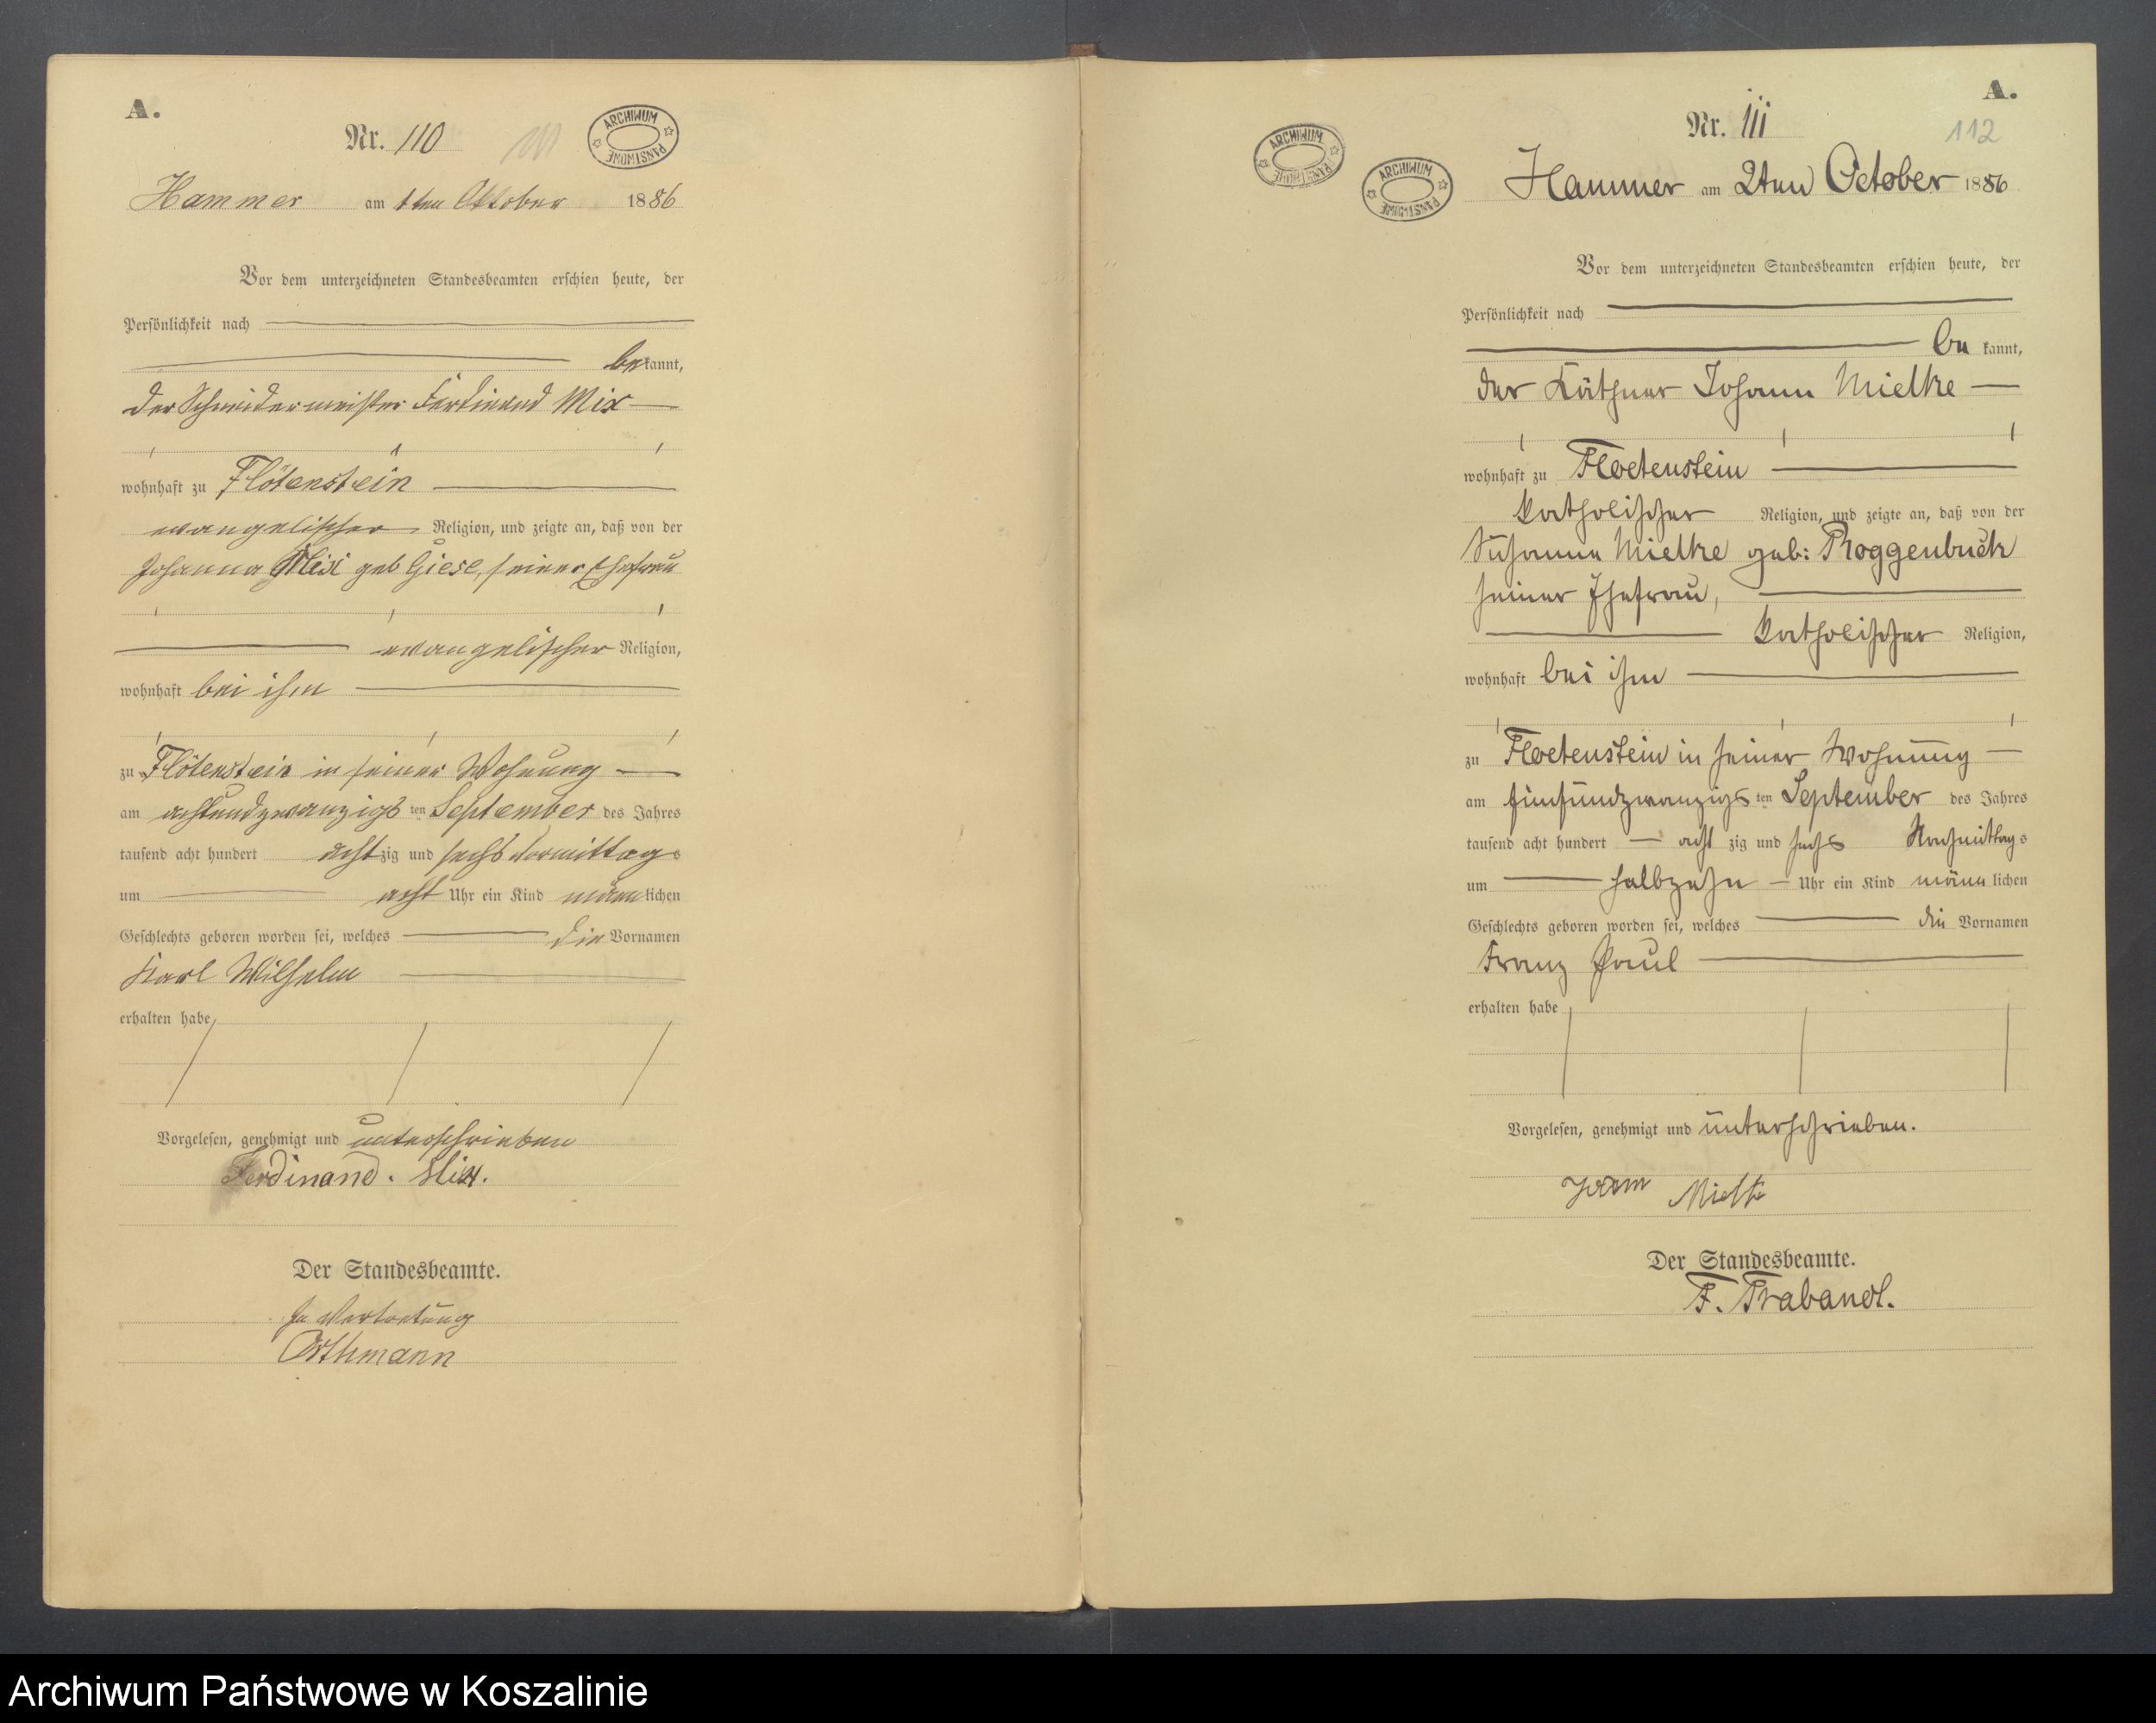 A.
Nr. 110
ARCHIWUM PAŃSTWOWE
Hammer am 1ten Oktober 1886
Vor dem unterzeichneten Standesbeamten erschien heute, der
Persönlichkeit nach
bekannt,
der Schneidermeister Ferdinand Mix
wohnhaft zu Flötenstein
evangelischer Religion, und zeigte an, daß von der
Johanna Mix geb Giese, seiner Ehefrau
evangelischer Religion,
wohnhaft bei ihm
zu Flötenstein in seiner Wohnung
am achtundzwanzigsten September des Jahres
tausend acht hundert achtzig und sechs Vormittags
um acht Uhr ein Kind männlichen
Geschlechts geboren worden sei, welches die Vornamen
Karl Wilhelm
erhalten habe
Vorgelesen, genehmigt und unterschrieben
Ferdinand. Mix.
Der Standesbeamte.
In Vertretung
Orthmann
A.
Nr. 111
112
ARCHIWUM PAŃSTWOWE
ARCHIWUM PAŃSTWOWE
Hammer am 2ten October 1886
Vor dem unterzeichneten Standesbeamten erschien heute, der
Persönlichkeit nach
bekannt,
der Käthner Johann Mielke
wohnhaft zu Floetenstein
katholischer Religion, und zeigte an, daß von der
Susanna Mielke geb: Roggenbuck
seiner Ehefrau,
katholischer Religion,
wohnhaft bei ihm
zu Floetenstein in seiner Wohnung
am fünfundzwanzigsten September des Jahres
tausend acht hundert acht zig und sechs Nachmittags
um halbzehn Uhr ein Kind männlichen
Geschlechts geboren worden sei, welches die Vornamen
Franz Paul
erhalten habe
Vorgelesen, genehmigt und unterschrieben.
Mielke
Der Standesbeamte.
F. Trabandt.
Archiwum Państwowe w Koszalinie